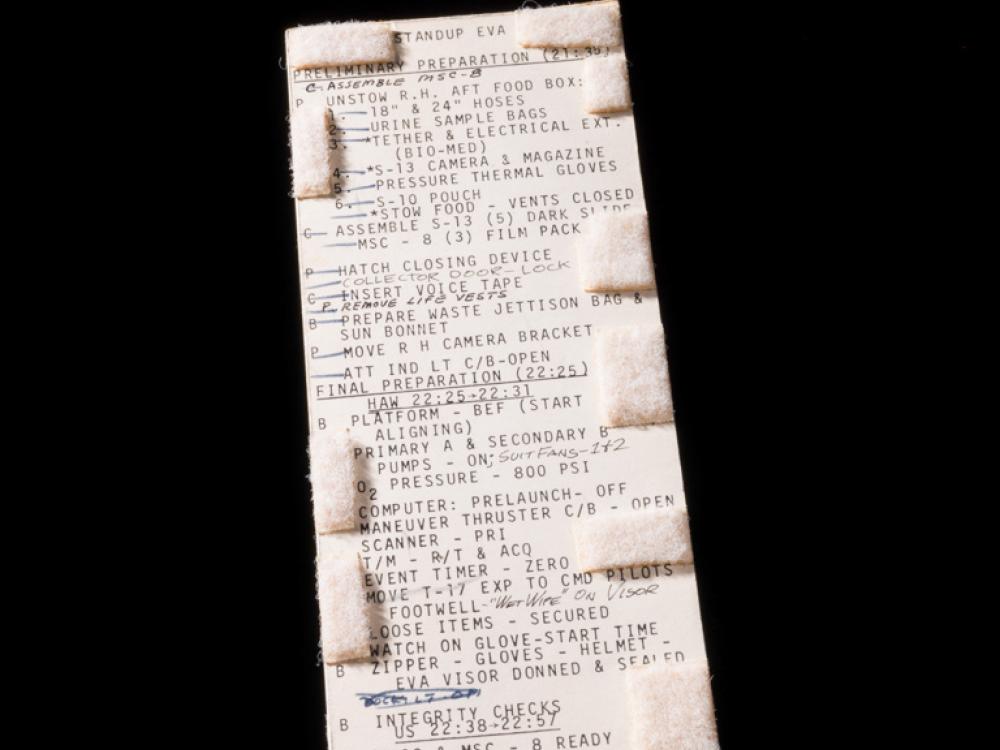 STANDUP EVA
PRELIMINARY PREPARATION (21:35)
C ASSEMBLE MSC-8
P UNSTOW R.H. AFT FOOD BOX:
1. 18" & 24" HOSES
2. URINE SAMPLE BAGS
3. *TETHER & ELECTRICAL EXT.
(BIO-MED)
4. *S-13 CAMERA & MAGAZINE
5. PRESSURE THERMAL GLOVES
6. S-10 POUCH
*STOW FOOD - VENTS CLOSED
C ASSEMBLE S-13 (5) DARK SLIDE
MSC - 8 (3) FILM PACK
P HATCH CLOSING DEVICE
COLLECTOR DOOR-LOCK
C INSERT VOICE TAPE
P REMOVE LIFE VESTS
B PREPARE WASTE JETTISON BAG &
SUN BONNET
P MOVE R H CAMERA BRACKET
ATT IND LT C/B-OPEN
FINAL PREPARATION (22:25)
HAW 22:25→22:31
B PLATFORM - BEF (START
ALIGNING)
PRIMARY A & SECONDARY B
PUMPS - ON; SUIT FANS-1+2
O2 PRESSURE - 800 PSI
COMPUTER: PRELAUNCH- OFF
MANEUVER THRUSTER C/B - OPEN
SCANNER - PRI
T/M - R/T & ACQ
EVENT TIMER - ZERO
MOVE T-17 EXP TO CMD PILOTS
FOOTWELL-"WET WIPE" ON VISOR
LOOSE ITEMS - SECURED
WATCH ON GLOVE-START TIME
B ZIPPER - GLOVES - HELMET -
EVA VISOR DONNED & SEALED
B INTEGRITY CHECKS
US 22:38→22:57
& MSC - 8 READY